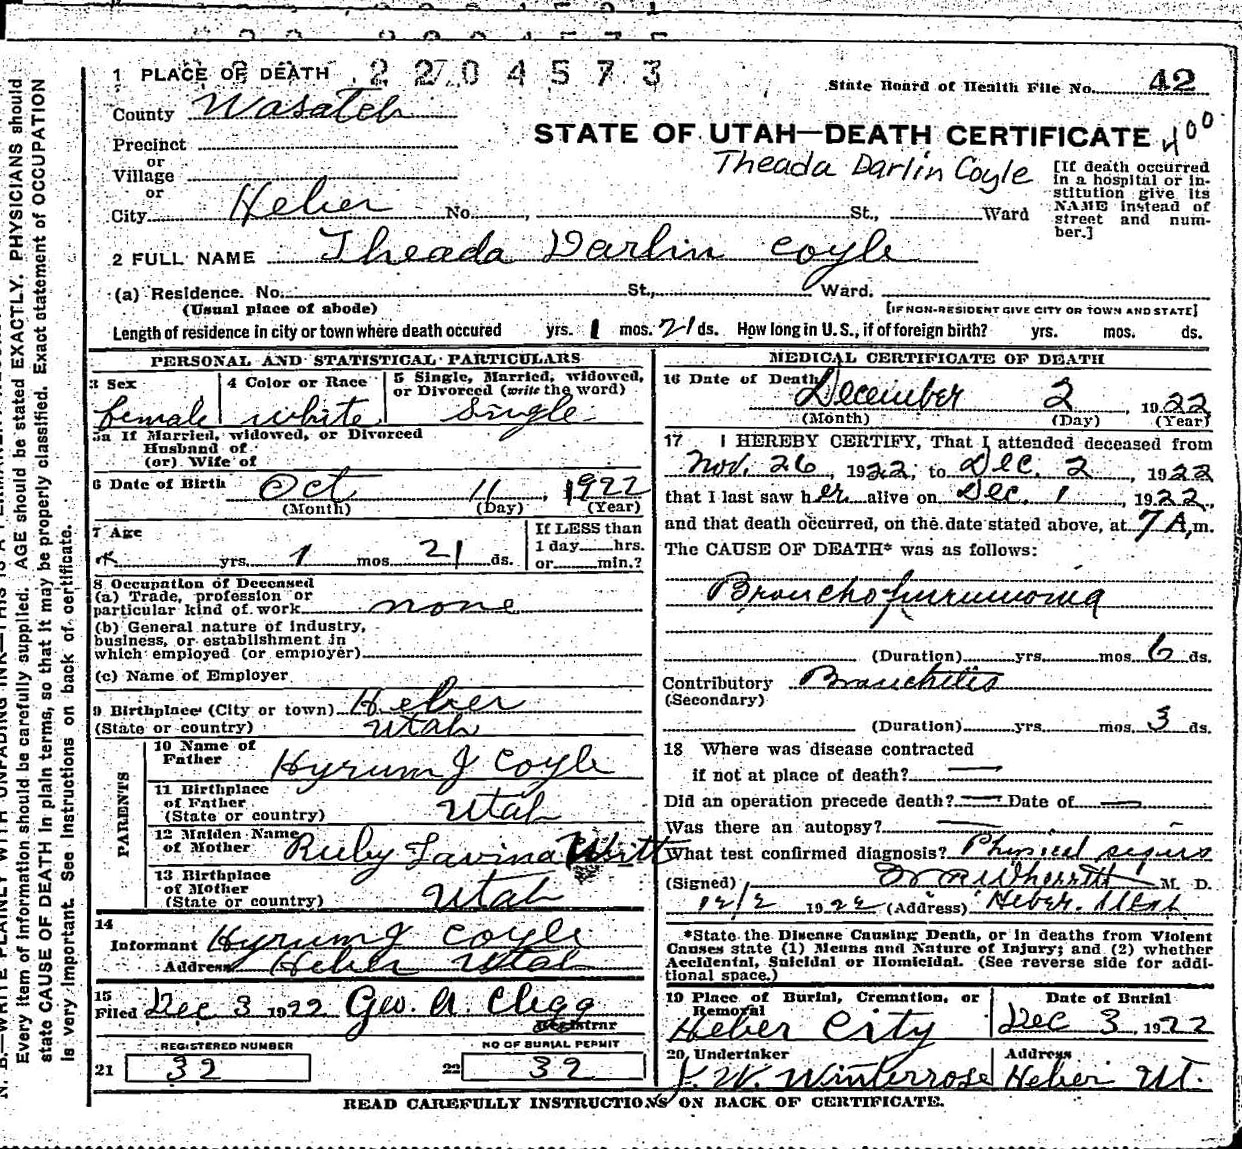 1 PLACE OF DEATH 2204573
State Board of Health File No. 42
County Wasatch
STATE OF UTAH—DEATH CERTIFICATE 400
Precinct
or
Village
or
Theada Darlin Coyle
[If death occurred in a hospital or institution give its NAME instead of street and number.]
City Heber No. , St., Ward
2 FULL NAME Theada Darlin Coyle
(a) Residence. No. St., Ward.
(Usual place of abode) [IF NON-RESIDENT GIVE CITY OR TOWN AND STATE]
Length of residence in city or town where death occured yrs. 1 mos. 21 ds. How long in U. S., if of foreign birth? yrs. mos. ds.
PERSONAL AND STATISTICAL PARTICULARS
3 Sex 4 Color or Race 5 Single, Married, widowed,
or Divorced (write the word)
female white Single
5a If Married, widowed, or Divorced
Husband of
(or) Wife of
6 Date of Birth Oct 11, 1922
(Month) (Day) (Year)
7 Age
yrs. 1 mos. 21 ds.
If LESS than
1 day hrs.
or min.?
8 Occupation of Deceased
(a) Trade, profession or
particular kind of work none
(b) General nature of industry,
business, or establishment in
which employed (or employer)
(c) Name of Employer
9 Birthplace (City or town) Heber
(State or country) Utah
PARENTS
10 Name of
Father Hyrum J Coyle
11 Birthplace
of Father
(State or country) Utah
12 Maiden Name
of Mother Ruby Lavina Witt
13 Birthplace
of Mother
(State or country) Utah
14
Informant Hyrum J Coyle
Address Heber Utah
15
Filed Dec 3 1922 Geo. A. Clegg
Registrar
REGISTERED NUMBER NO OF BURIAL PERMIT
21 32 22 32
MEDICAL CERTIFICATE OF DEATH
16 Date of Death December 2, 1922
(Month) (Day) (Year)
17 I HEREBY CERTIFY, That I attended deceased from
Nov. 26, 1922, to Dec. 2 1922
that I last saw her alive on Dec. 1, 1922,
and that death occurred, on the date stated above, at 7 A, m.
The CAUSE OF DEATH* was as follows:
Bronchopneumonia
(Duration) yrs. mos. 6 ds.
Contributory Bronchitis
(Secondary)
(Duration) yrs. mos. 3 ds.
18 Where was disease contracted
if not at place of death? —
Did an operation precede death? — Date of —
Was there an autopsy? —
What test confirmed diagnosis? Physical signs
(Signed) Wherritt M. D.
12/2 1922 (Address) Heber. Utah
*State the Disease Causing Death, or in deaths from Violent
Causes state (1) Means and Nature of Injury; and (2) whether
Accidental, Suicidal or Homicidal. (See reverse side for addi-
tional space.)
19 Place of Burial, Cremation, or
Removal Date of Burial
Heber City Dec 3, 1922
20 Undertaker Address
J. W. Winterrose Heber Ut.
READ CAREFULLY INSTRUCTIONS ON BACK OF CERTIFICATE.
Every item of information should be carefully supplied. AGE should be stated EXACTLY. PHYSICIANS should
state CAUSE OF DEATH in plain terms, so that it may be properly classified. Exact statement of OCCUPATION
is very important. See Instructions on back of certificate.